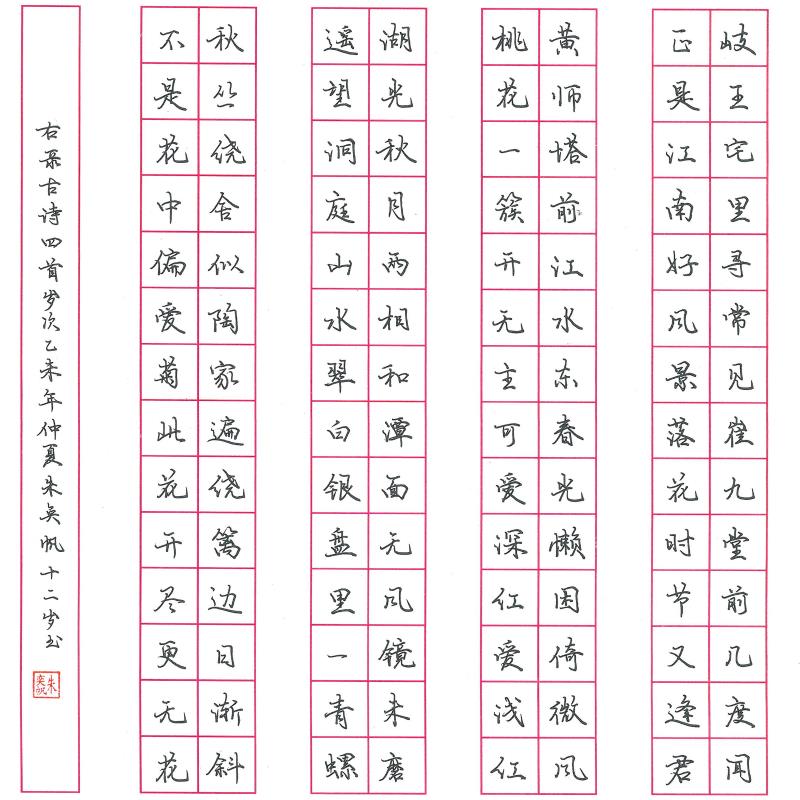 岐王宅里寻常见崔九堂前几度闻
正是江南好风景落花时节又逢君
黄师塔前江水东春光懒困倚微风
桃花一簇开无主可爱深红爱浅红
湖光秋月两相和潭面无风镜未磨
遥望洞庭山水翠白银盘里一青螺
秋丛绕舍似陶家遍绕篱边日渐斜
不是花中偏爱菊此花开尽更无花
右录古诗四首岁次乙未年仲夏朱奕帆十二岁书
朱奕帆